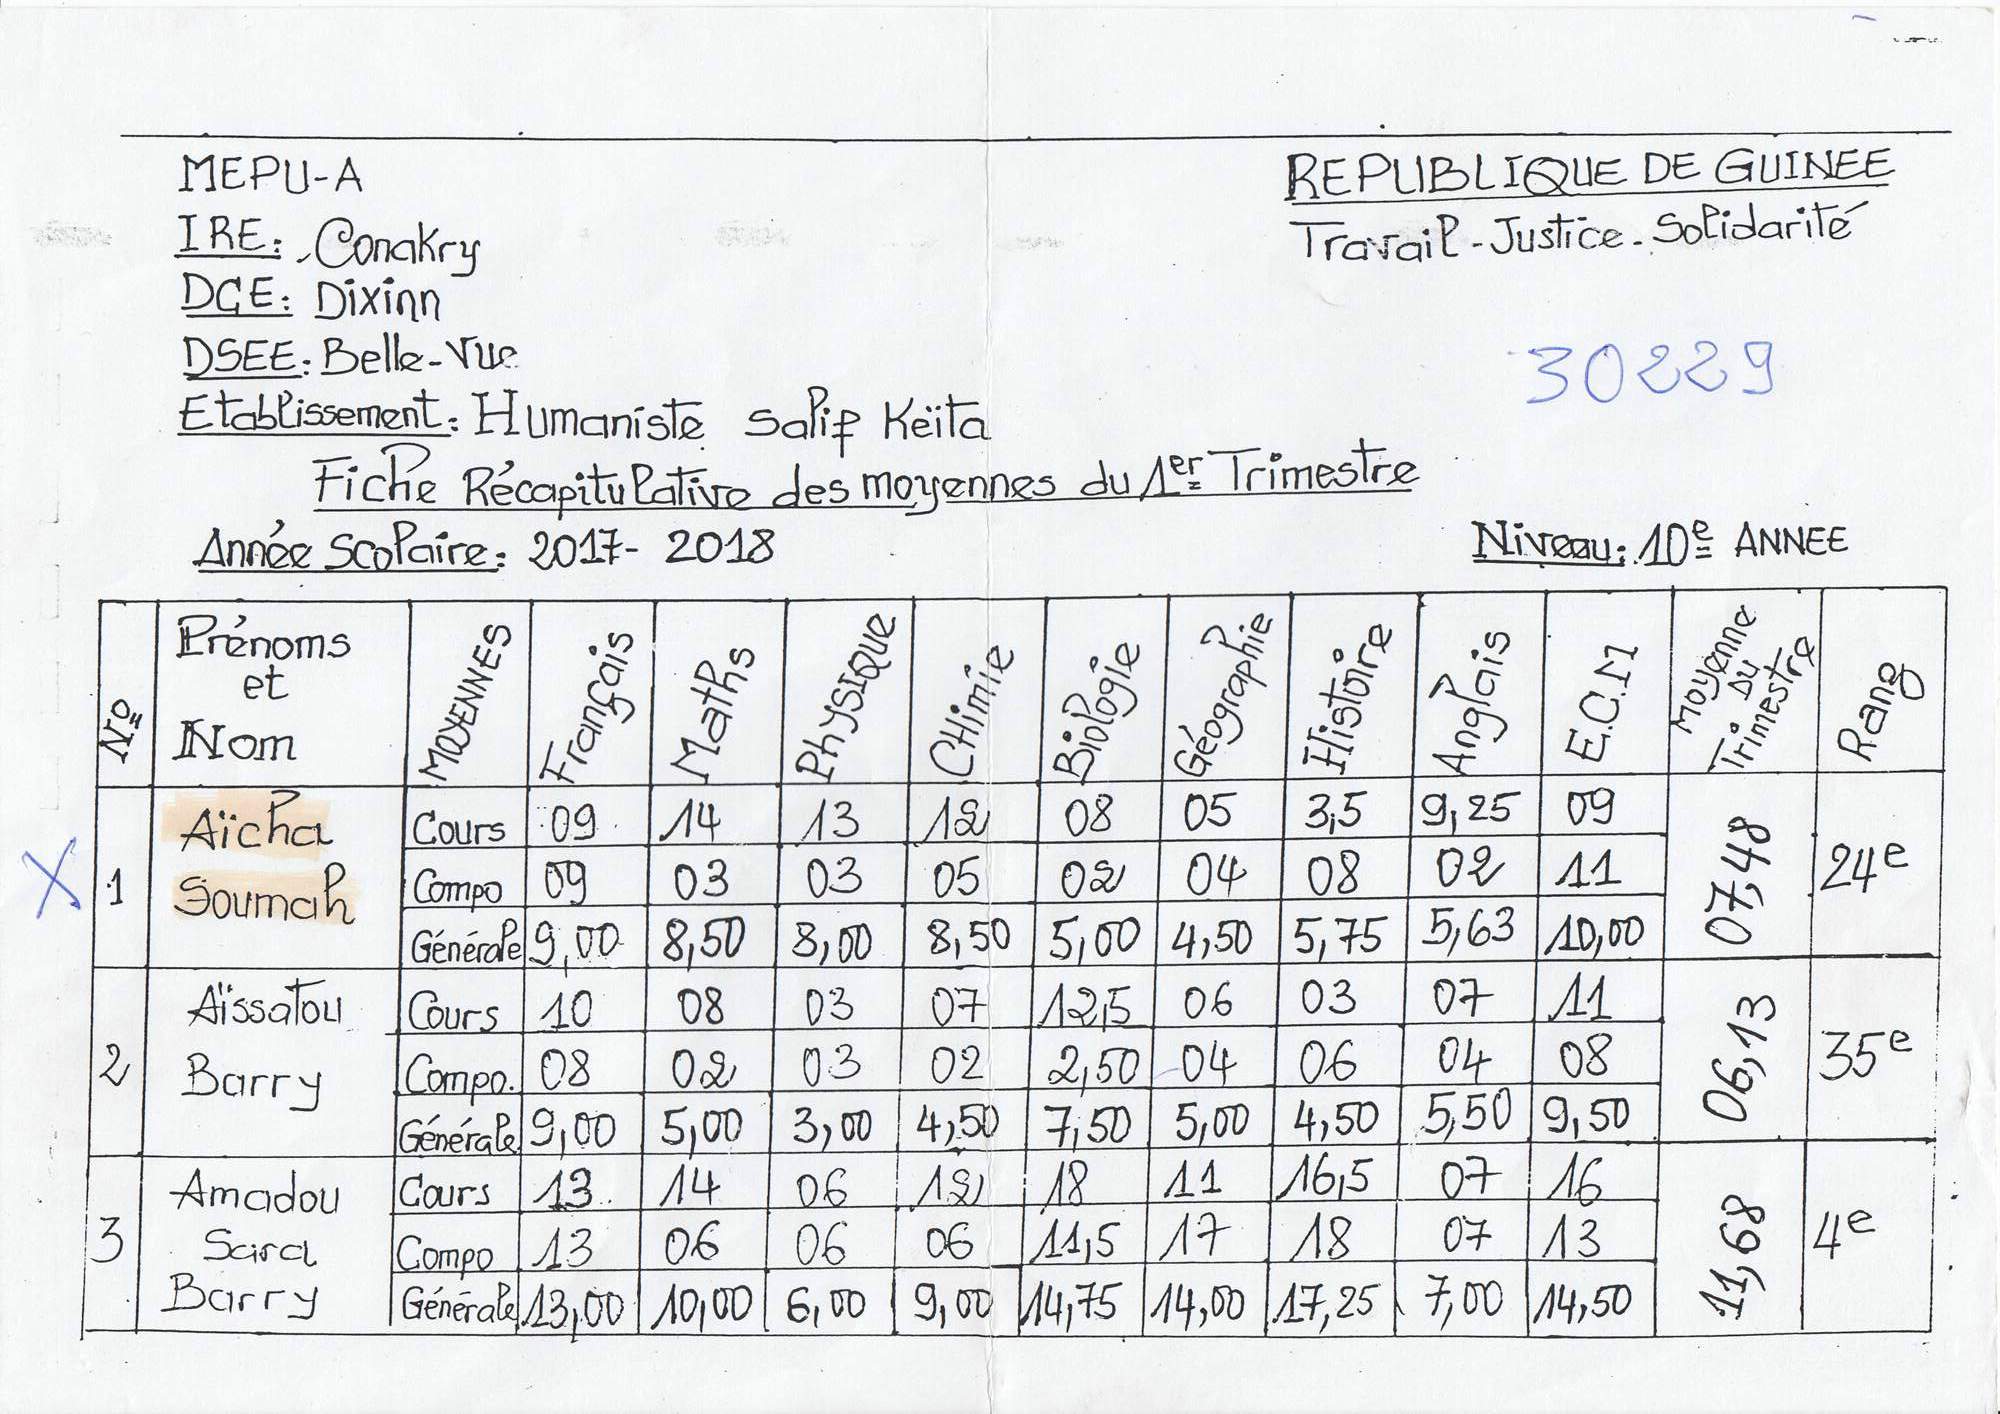 MEPU-A
REPUBLIQUE DE GUINEE
IRE: Conakry
Travail-Justice-Solidarité
DCE: Dixinn
DSEE: Belle-Vue
30229
Etablissement: Humaniste Salif Keïta
Fiche Récapitulative des moyennes du 1er Trimestre
Année Scolaire: 2017-2018
Niveau: 10e ANNEE
No Prénoms et Nom MOYENNES Français Maths PHYSIQUE CHimie Biologie Géographie Histoire Anglais E.C.M Moyenne Du Trimestre Rang
1 Aïcha Soumah Cours 09 14 13 12 08 05 3,5 9,25 09 07,48 24e
Compo 09 03 03 05 02 04 08 02 11
Générale 9,00 8,50 8,00 8,50 5,00 4,50 5,75 5,63 10,00
2 Aïssatou Barry Cours 10 08 03 07 12,5 06 03 07 11 06,13 35e
Compo. 08 02 03 02 2,50 04 06 04 08
Générale 9,00 5,00 3,00 4,50 7,50 5,00 4,50 5,50 9,50
3 Amadou Sara Barry Cours 13 14 06 12 18 11 16,5 07 16 11,68 4e
Compo 13 06 06 06 11,5 17 18 07 13
Générale 13,00 10,00 6,00 9,00 14,75 14,00 17,25 7,00 14,50